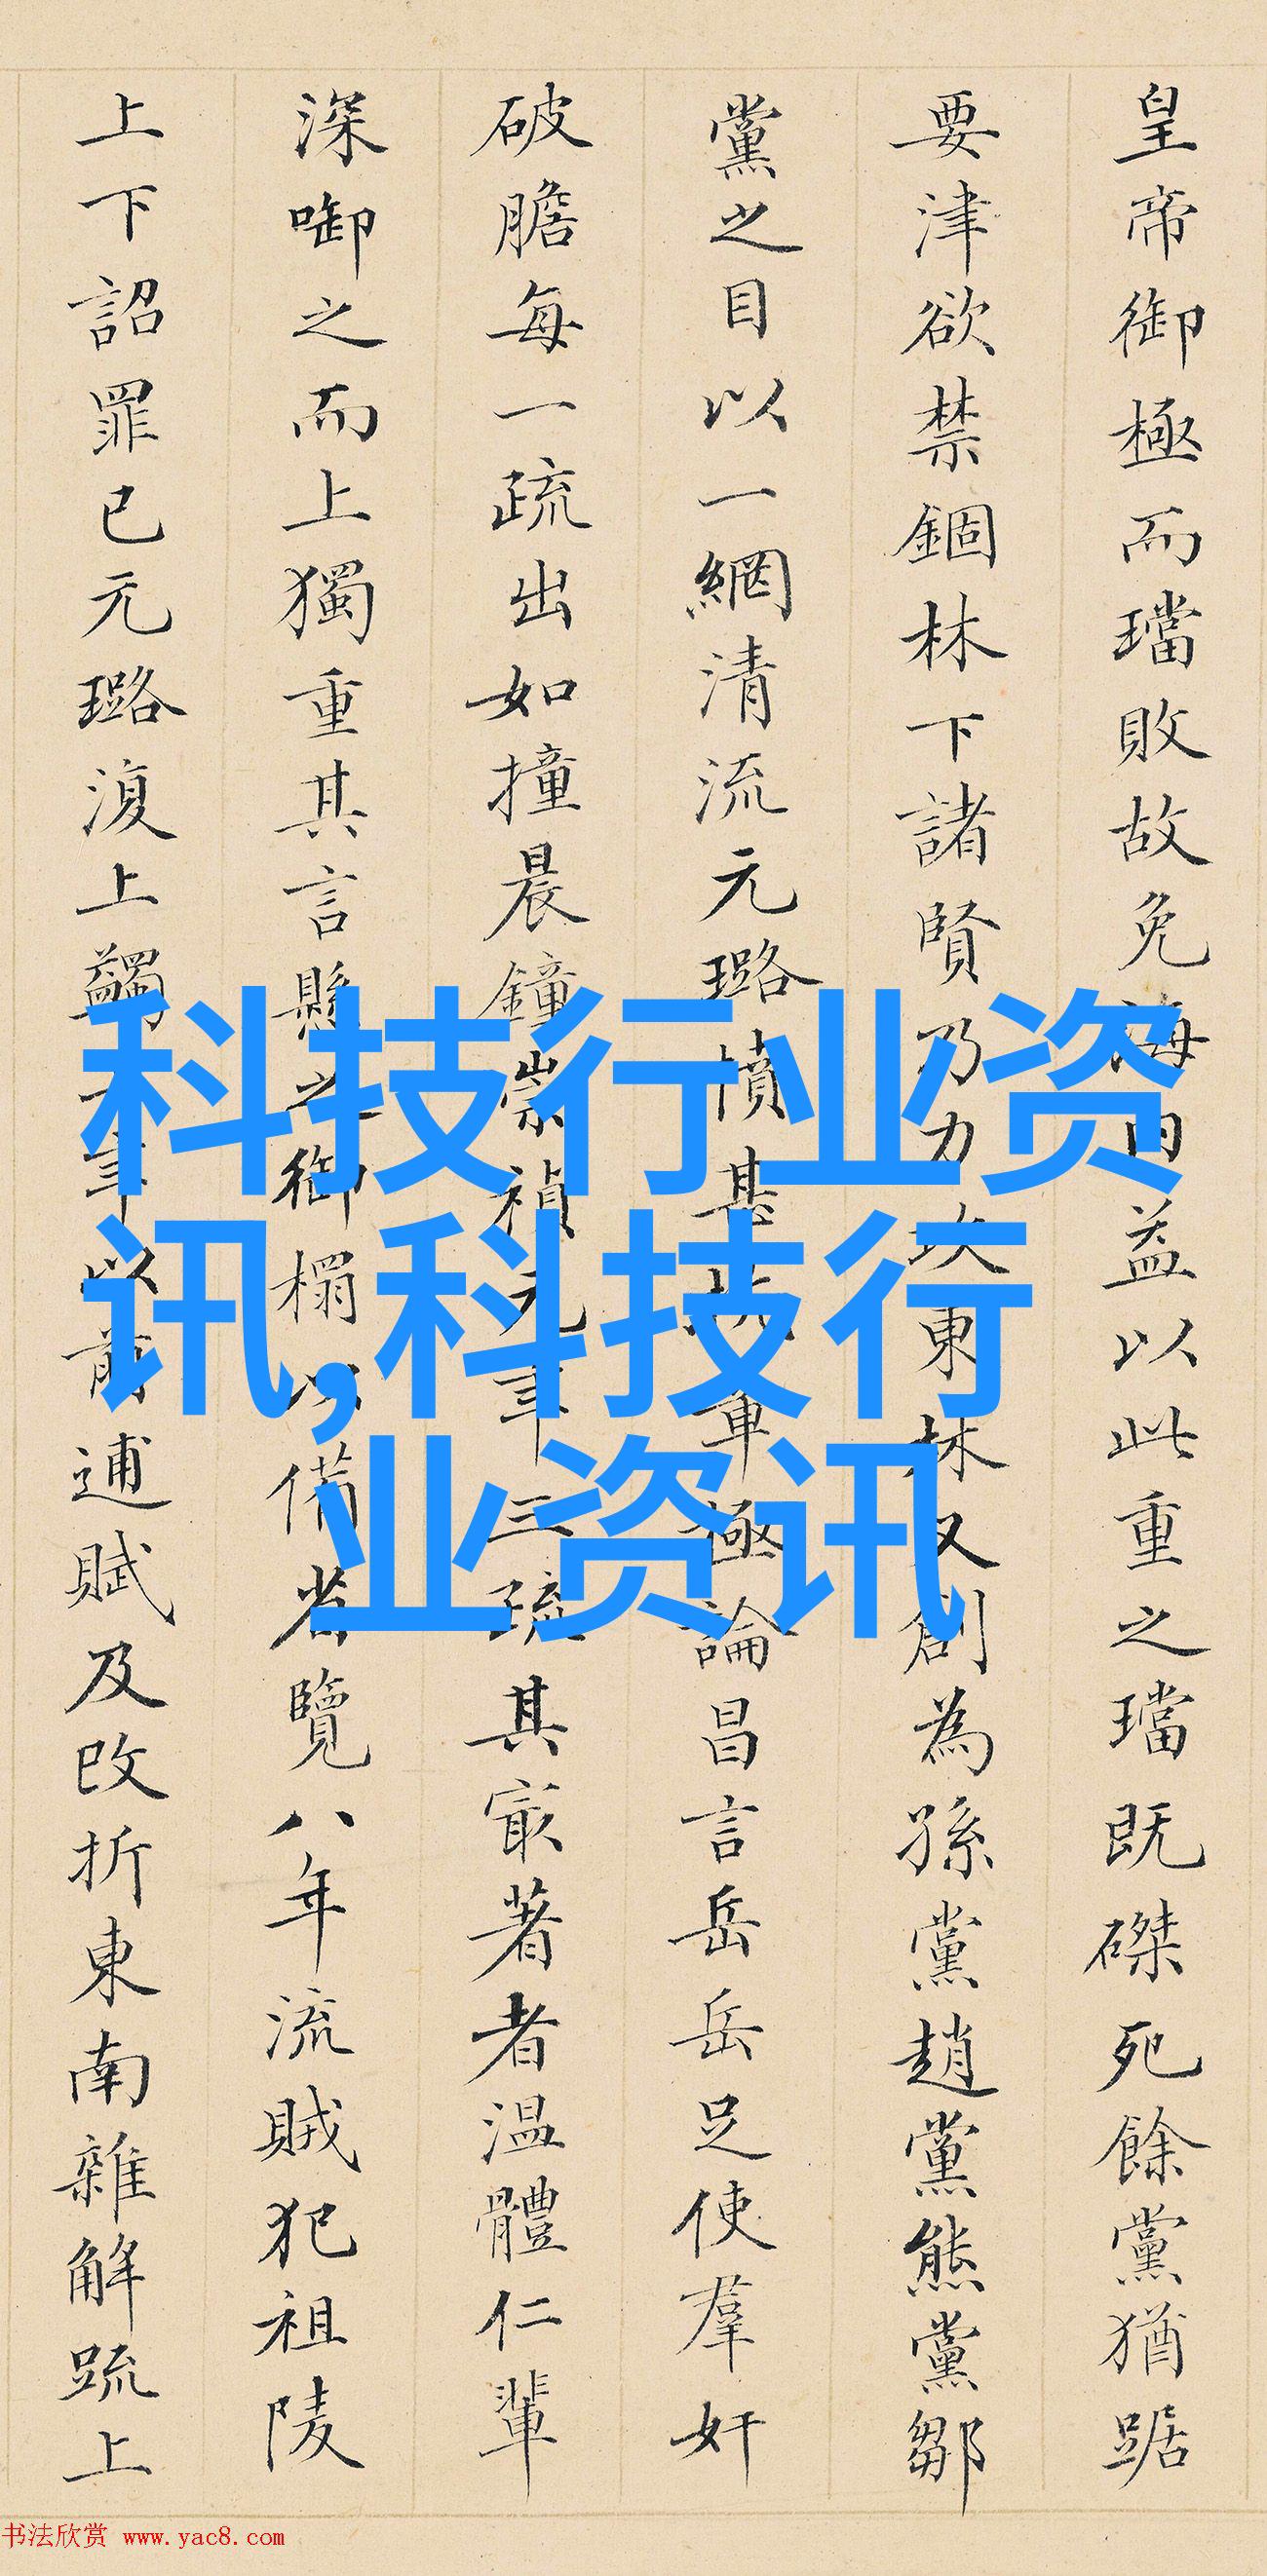 皇帝御極而璫敗故免海内益以此重之璫既磔死餘黨猶踞
要津欲禁錮林下諸賢乃力攻東林又創為孫黨趙黨熊黨鄒
黨之目以一網清流元璐憤甚抗章極論昌言岳岳足使羣奸
破膽每一疏出如撞晨鐘崇禎元年三疏其最著者温體仁輩
深啣之而上獨重其言懸之御榻以備省覽八年流賊犯祖陵
上下詔罪已元璐復上蠲年以前逋賦及改折東南雜解疏上
科技行业资
讯,科技行
业资讯
书法欣赏 www.yac8.com